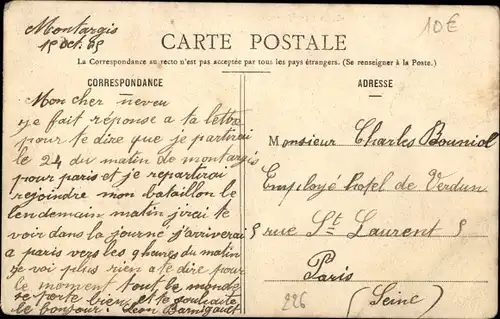 Montargis
15 Oct. 05
10€
CARTE POSTALE
La Correspondance au recto n'est pas acceptée par tous les pays étrangers. (Se renseigner à la Poste.)
CORRESPONDANCE
Mon cher neveu
je fait réponse a ta lettre
pour te dire que je partirai
le 24 du matin de montargis
pour paris et je repartirai
rejoindre mon bataillon le
lendemain matin jirai te
voir dans la journé j'arriverai
a paris vers les 9 heures du matin
je voi plus rien a te dire pour
le moment tout le monde
se porte bien et te souhaite
le bonjour. Leon
ADRESSE
Monsieur Charles Bouniol
Employé hotel de Verdun
5 rue St Laurent 5
Paris
(Seine)
226